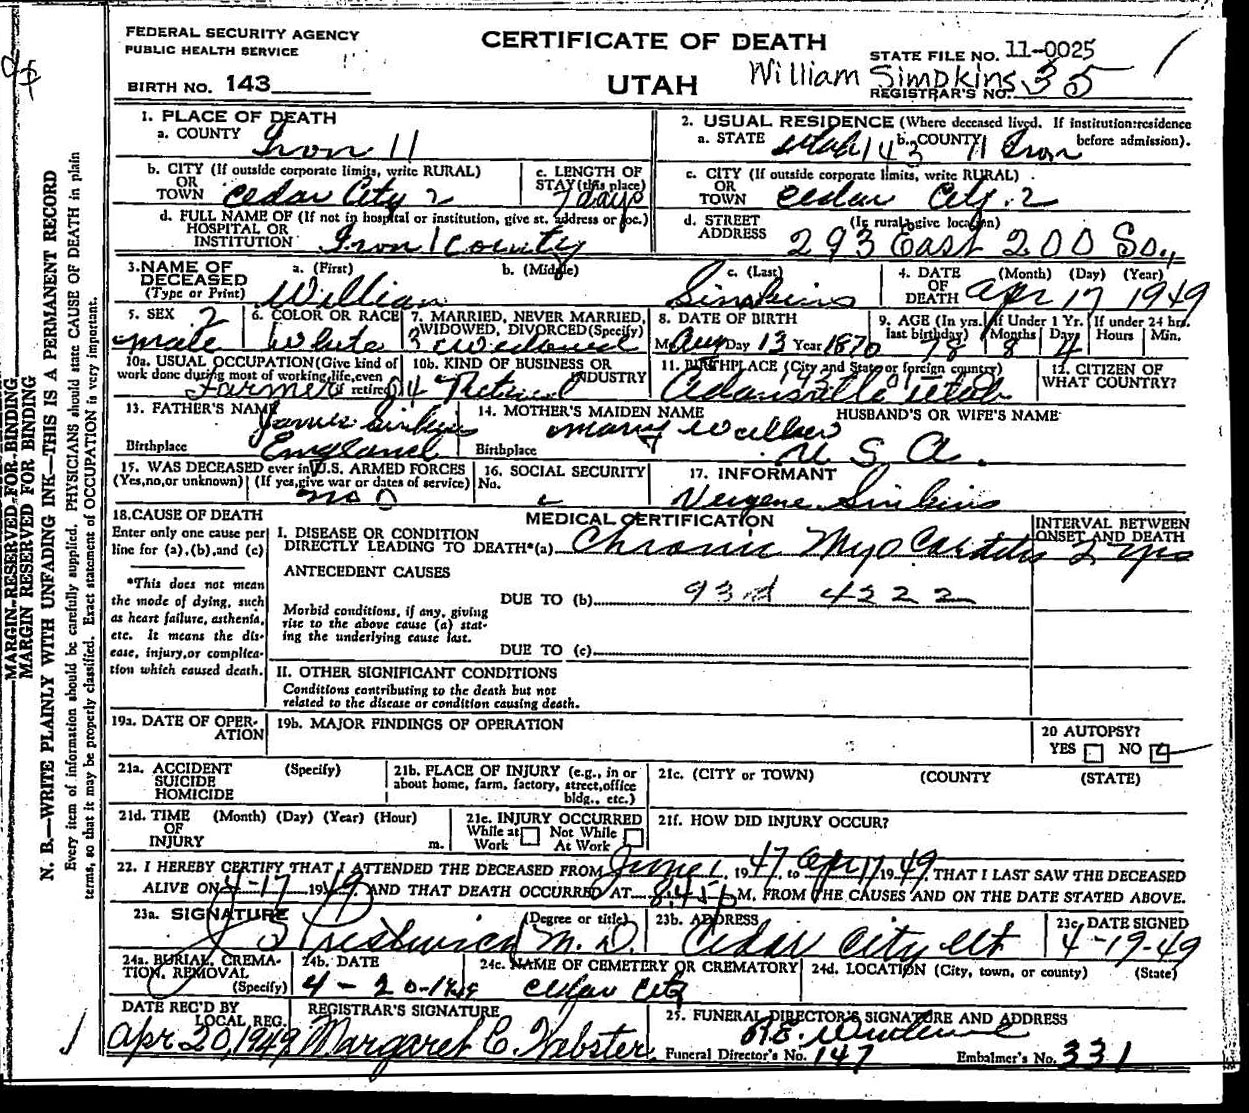 FEDERAL SECURITY AGENCY
PUBLIC HEALTH SERVICE
CERTIFICATE OF DEATH
STATE FILE NO. 11-0025
BIRTH NO. 143
UTAH
William Simpkins
REGISTRAR'S NO. 35
1. PLACE OF DEATH
a. COUNTY Iron 11
2. USUAL RESIDENCE (Where deceased lived. If institution: residence before admission).
a. STATE Utah 143 b. COUNTY 11 Iron
b. CITY (If outside corporate limits, write RURAL) OR TOWN Cedar City 2
c. LENGTH OF STAY (this place) 7 days
c. CITY (If outside corporate limits, write RURAL) OR TOWN Cedar City. 2
d. FULL NAME OF (If not in hospital or institution, give st. address or loc.) HOSPITAL OR INSTITUTION Iron County
d. STREET ADDRESS (If rural give location) 293 East 200 So.,
3. NAME OF DECEASED (Type or Print) a. (First) William b. (Middle) c. (Last) Simpkins
4. DATE OF DEATH (Month) (Day) (Year) Apr 17 1949
5. SEX 2 male
6. COLOR OR RACE White
7. MARRIED, NEVER MARRIED, WIDOWED, DIVORCED (Specify) 3 Widowed
8. DATE OF BIRTH M Aug Day 13 Year 1870
9. AGE (In yrs. last birthday) 78 If Under 1 Yr. Months 8 Days 4 If under 24 hrs. Hours Min.
10a. USUAL OCCUPATION (Give kind of work done during most of working life, even if retired) Farmer
10b. KIND OF BUSINESS OR INDUSTRY Retired
11. BIRTHPLACE (City and State or foreign country) Adamsville Utah
12. CITIZEN OF WHAT COUNTRY?
13. FATHER'S NAME James Simkins
Birthplace England
14. MOTHER'S MAIDEN NAME Mary Walker
Birthplace U S A.
HUSBAND'S OR WIFE'S NAME
15. WAS DECEASED ever in U.S. ARMED FORCES (Yes, no, or unknown) (If yes, give war or dates of service) no 0
16. SOCIAL SECURITY No.
17. INFORMANT Vergene Simkins
18. CAUSE OF DEATH
Enter only one cause per line for (a), (b), and (c)
*This does not mean the mode of dying, such as heart failure, asthenia, etc. It means the disease, injury, or complication which caused death.
MEDICAL CERTIFICATION
INTERVAL BETWEEN ONSET AND DEATH
I. DISEASE OR CONDITION DIRECTLY LEADING TO DEATH*(a) Chronic Myocarditis 2 yrs
ANTECEDENT CAUSES
DUE TO (b) 93d 4222
Morbid conditions, if any, giving rise to the above cause (a) stating the underlying cause last.
DUE TO (c)
II. OTHER SIGNIFICANT CONDITIONS
Conditions contributing to the death but not related to the disease or condition causing death.
19a. DATE OF OPERATION
19b. MAJOR FINDINGS OF OPERATION
20 AUTOPSY?
YES NO
21a. ACCIDENT SUICIDE HOMICIDE (Specify)
21b. PLACE OF INJURY (e.g., in or about home, farm, factory, street, office bldg., etc.)
21c. (CITY or TOWN) (COUNTY) (STATE)
21d. TIME OF INJURY (Month) (Day) (Year) (Hour) m.
21e. INJURY OCCURRED While at Work Not While At Work
21f. HOW DID INJURY OCCUR?
22. I HEREBY CERTIFY THAT I ATTENDED THE DECEASED FROM June 1, 1947, to Apr 17 1949, THAT I LAST SAW THE DECEASED
ALIVE ON 4-17 1949 AND THAT DEATH OCCURRED AT 8:45 p M. FROM THE CAUSES AND ON THE DATE STATED ABOVE.
23a. SIGNATURE (Degree or title) Prestwich M.D.
23b. ADDRESS Cedar City Ut
23c. DATE SIGNED 4-19-49
24a. BURIAL, CREMATION, REMOVAL (Specify)
24b. DATE 4-20-1949
24c. NAME OF CEMETERY OR CREMATORY Cedar City
24d. LOCATION (City, town, or county) (State)
DATE REC'D BY LOCAL REG. Apr 20, 1949
REGISTRAR'S SIGNATURE Margaret C. Webster
25. FUNERAL DIRECTOR'S SIGNATURE AND ADDRESS
Funeral Director's No. 147 Embalmer's No. 331
MARGIN RESERVED FOR BINDING
MARGIN RESERVED FOR BINDING
N. B.—WRITE PLAINLY WITH UNFADING INK—THIS IS A PERMANENT RECORD
Every item of information should be carefully supplied. PHYSICIANS should state CAUSE OF DEATH in plain
terms, so that it may be properly classified. Exact statement of OCCUPATION is very important.